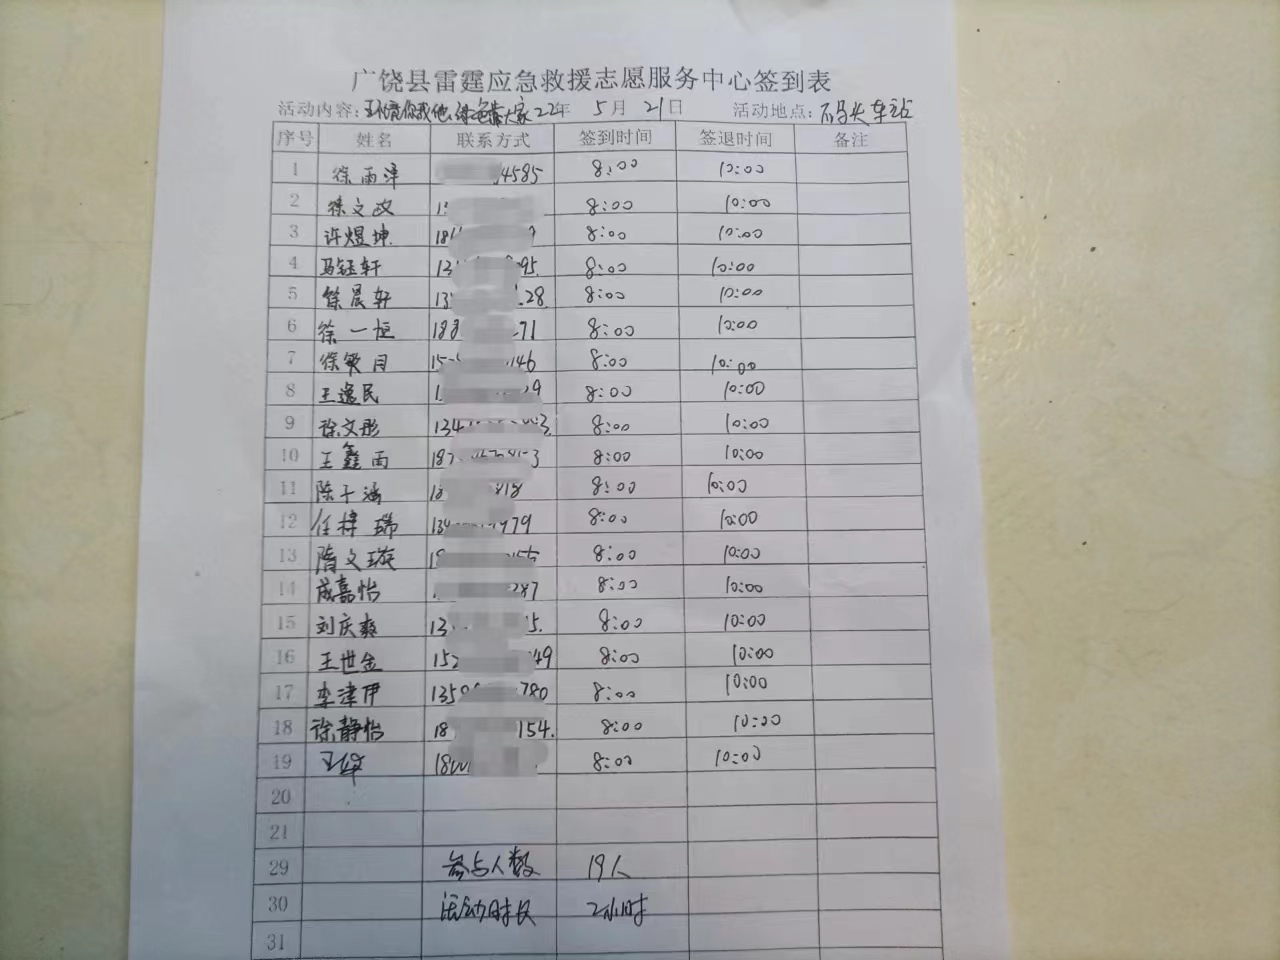 广饶县雷霆应急救援志愿服务中心签到表
活动内容:环境你我他,绿色靠大家 22年 5月 21日 活动地点:石马头车站
序号 姓名 联系方式 签到时间 签退时间 备注
1 徐雨泽 4585 8:00 10:00
2 徐文政 1 8:00 10:00
3 许煜坤 18 9 8:00 10:00
4 马钰轩 13 95. 8:00 10:00
5 徐晨轩 13 28. 8:00 10:00
6 徐一恒 188 71 8:00 10:00
7 徐敏月 15 146 8:00 10:00
8 王逸民 1 9 8:00 10:00
9 徐文彤 134 3. 8:00 10:00
10 王鑫雨 187 3 8:00 10:00
11 陈子涵 18 818 8:00 10:00
12 任梓瑞 134 979 8:00 10:00
13 隋文璇 18 8:00 10:00
14 成嘉怡 287 8:00 10:00
15 刘庆爽 13 5. 8:00 10:00
16 王世金 152 49 8:00 10:00
17 李津伊 135 780 8:00 10:00
18 徐静怡 18 154. 8:00 10:00
19 18 8:00 10:00
20
21
29 参与人数 19人
30 活动时长 2小时
31